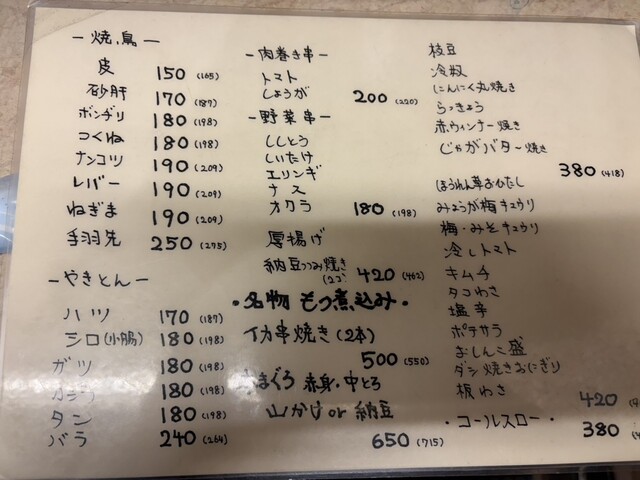 ー焼、鳥ー
皮 150 (165)
砂肝 170 (187)
ボンヂリ 180 (198)
つくね 180 (198)
ナンコツ 190 (209)
レバー 190 (209)
ねぎま 190 (209)
手羽先 250 (275)
ーやきとんー
ハツ 170 (187)
シロ(小腸) 180 (198)
ガツ 180 (198)
カシラ 180 (198)
タン 180 (198)
バラ 240 (264)
ー肉巻き串ー
トマト
しょうが
200 (220)
ー野菜串ー
ししとう
しいたけ
エリンギ
ナス
オクラ 180 (198)
厚揚げ
納豆つつみ焼き
(2コ) 420 (462)
・名物 もつ煮込み・
イカ串焼き(2本)
500 (550)
まぐろ 赤身・中とろ
山かけ or 納豆
650 (715)
枝豆
冷奴
にんにく丸焼き
らっきょう
赤ウィンナー焼き
じゃがバター焼き
380 (418)
ほうれん草おひたし
みょうが梅キュウリ
梅・みそキュウリ
冷しトマト
キムチ
タコわさ
塩辛
ポテサラ
おしんこ盛
ダシ焼きおにぎり
板わさ
420
・コールスロー・
380